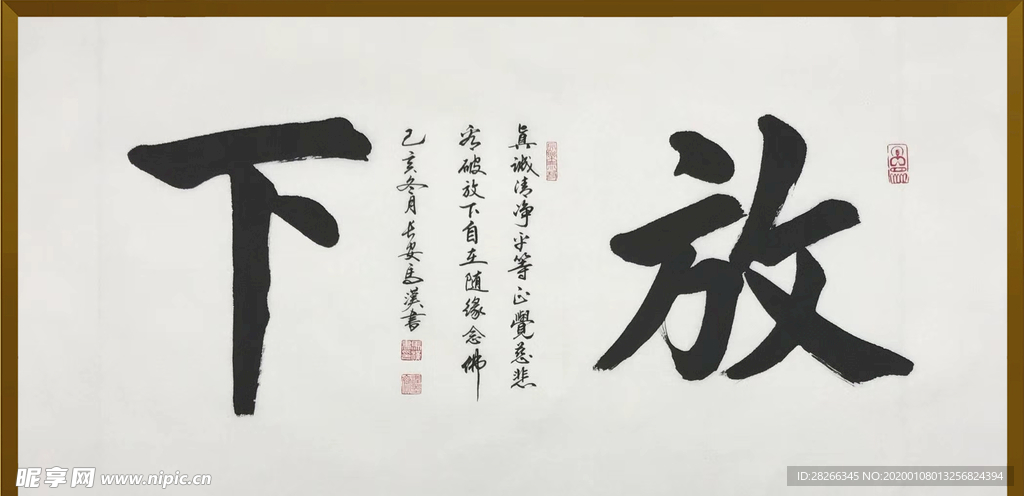 放下
真誠清净平等正覺慈悲
看破放下自在随缘念佛
己亥冬月長安馬漢書
昵享网 www.nipic.cn
ID:28266345 NO:20200108013256824394